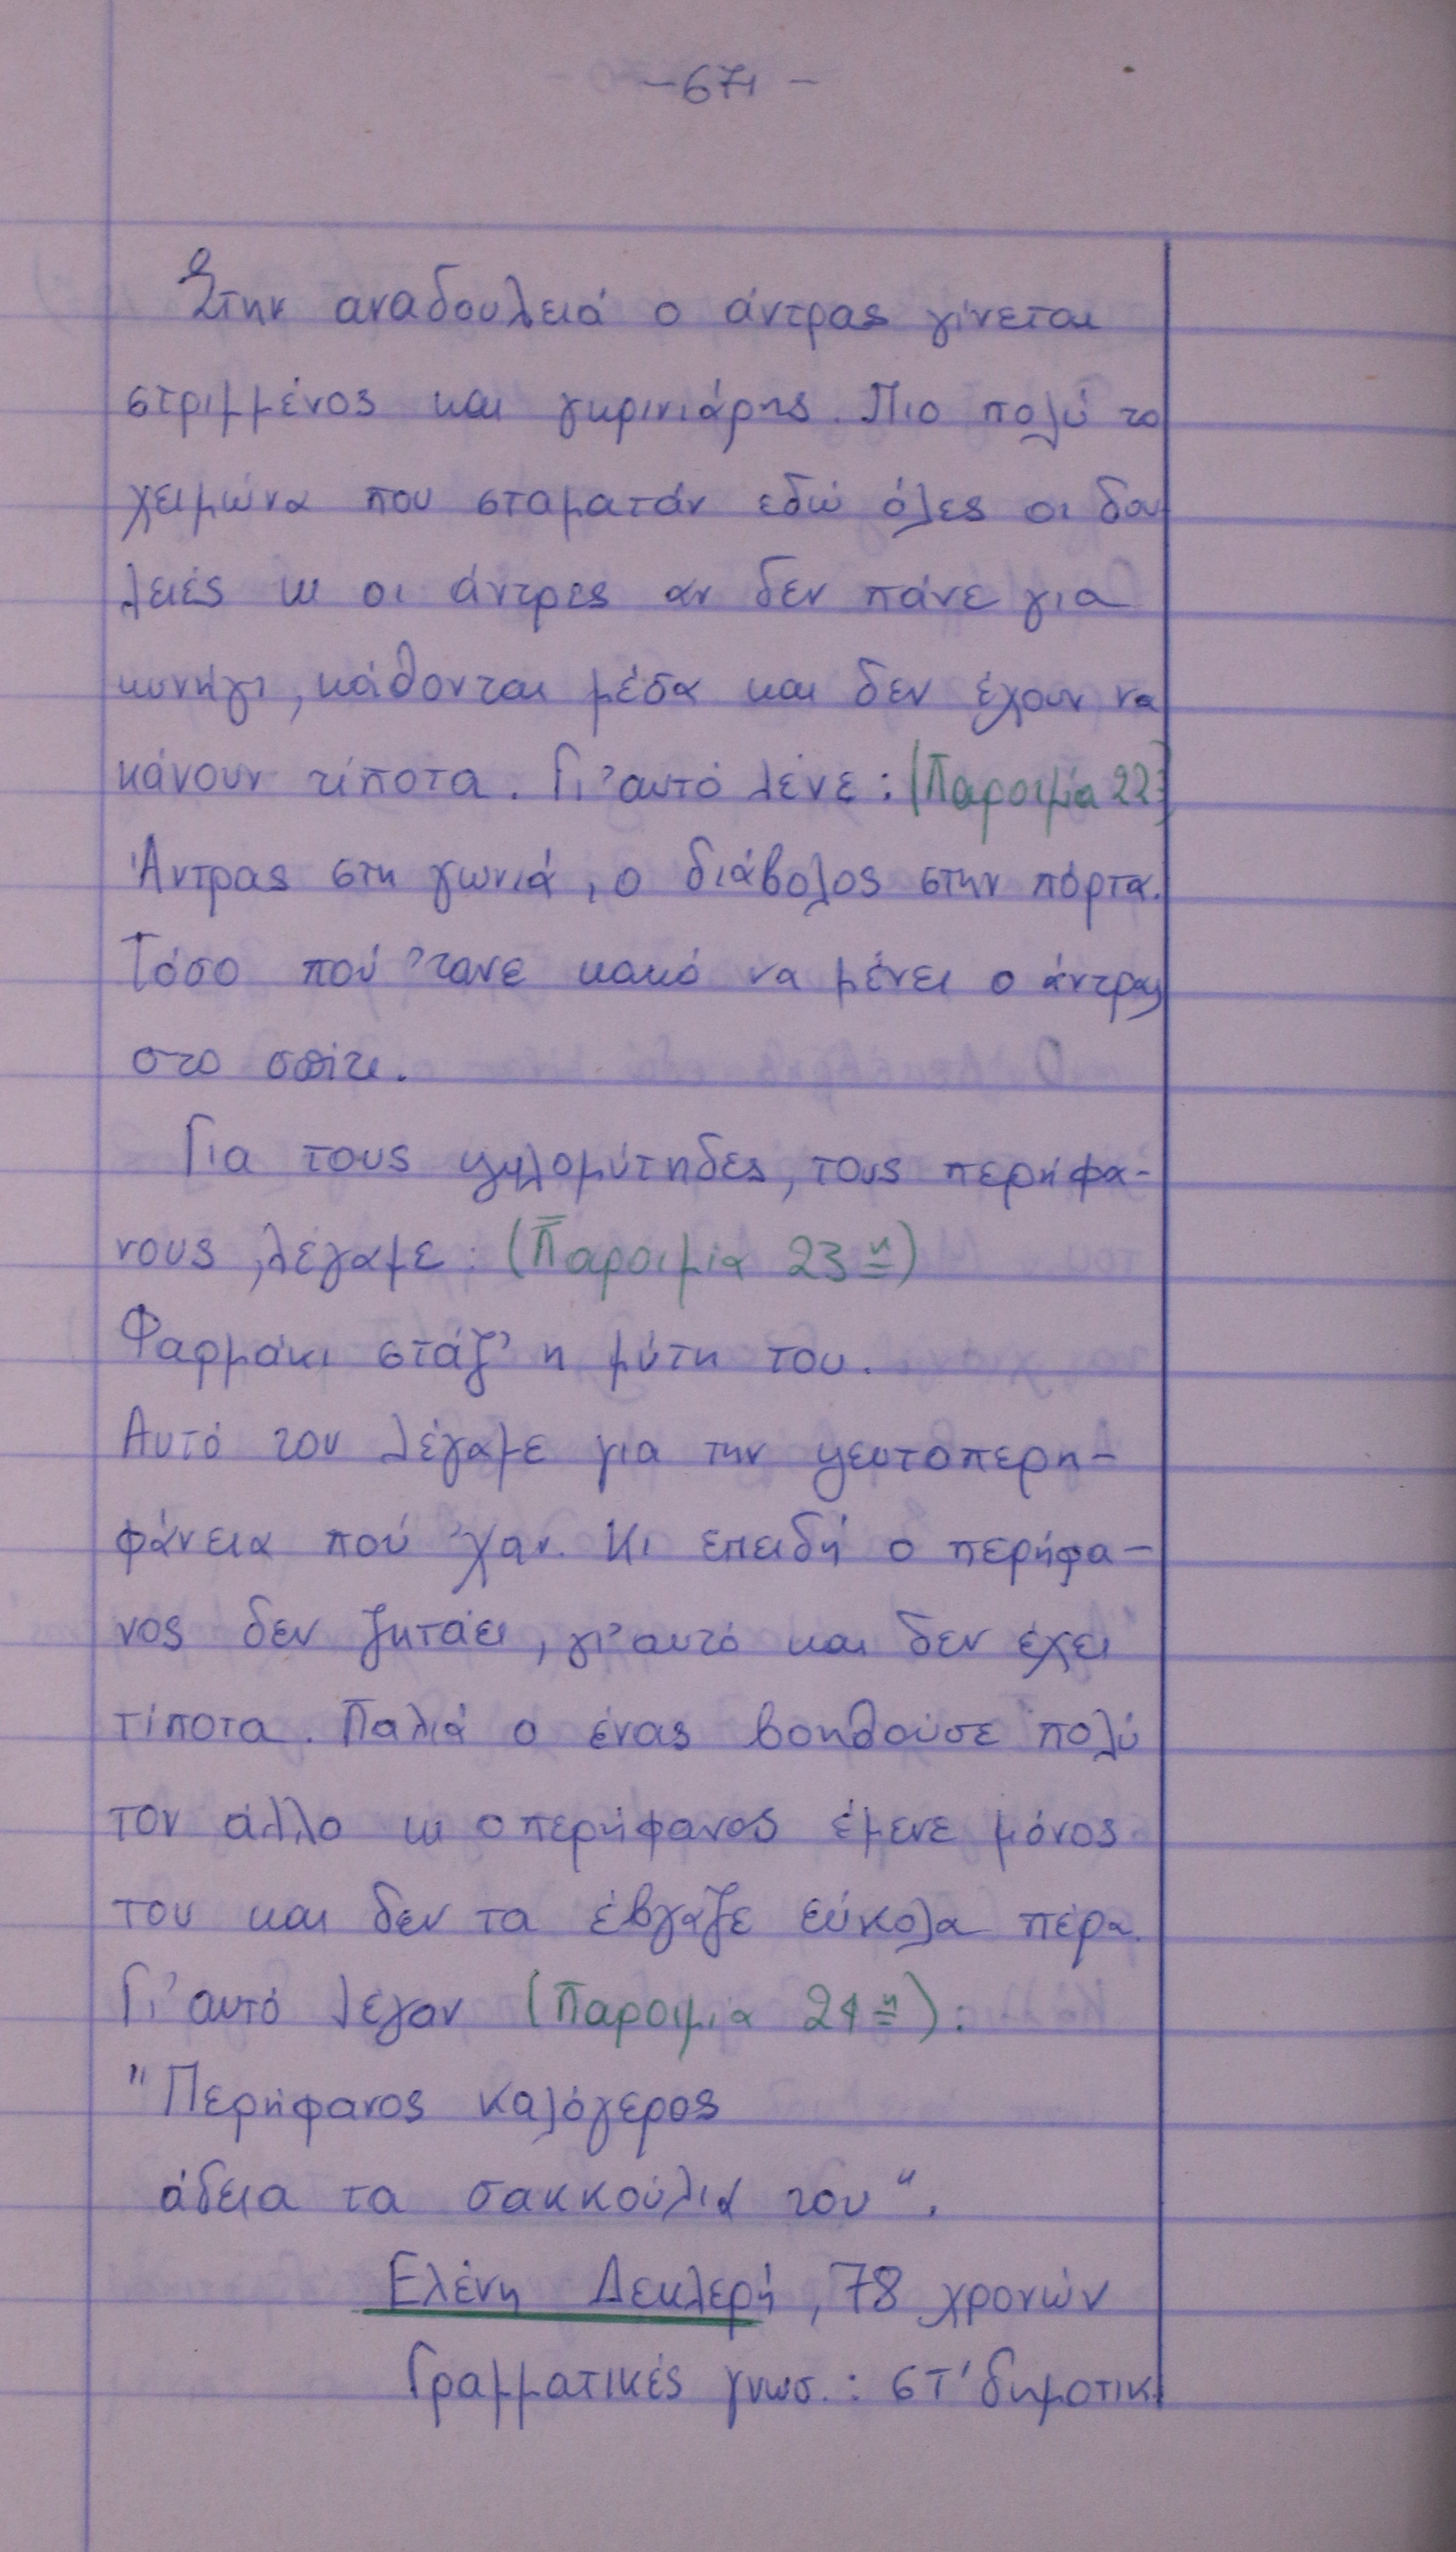 -671-
Στην αναδουλειά ο άντρας γίνεται
στριμμένος και γκρινιάρης. Πιο πολύ το
χειμώνα που σταματάν εδώ όλες οι δου
λειές κι οι άντρες αν δεν πάνε για
κυνήγι, κάθονται μέσα και δεν έχουν να
κάνουν τίποτα. Γι'αυτό λένε: (Παροιμία 22)
Άντρας στη γωνιά, ο διάβολος στην πόρτα.
Τόσο πού 'τανε κακό να μένει ο άντρας
στο σπίτι.
Για τους ψηλομύτηδες, τους περήφα-
νους, λέγαμε: (Παροιμία 23η)
Φαρμάκι στάζ' η μύτη του.
Αυτό τον λέγαμε για την ψευτοπερη-
φάνεια πού 'χαν. Κι επειδή ο περήφα-
νος δεν ζητάει, γι'αυτό και δεν έχει
τίποτα. Παλιά ο ένας βοηθούσε πολύ
τον άλλο κι ο περήφανος έμενε μόνος
του και δεν τα έβγαζε εύκολα πέρα.
Γι'αυτό λέγαν (Παροιμία 24η):
"Περήφανος καλόγερος
άδεια τα σακκούλια του".
Ελένη Δεκλερή, 78 χρονών
Γραμματικές γνωσ.: ΣΤ' δημοτικ